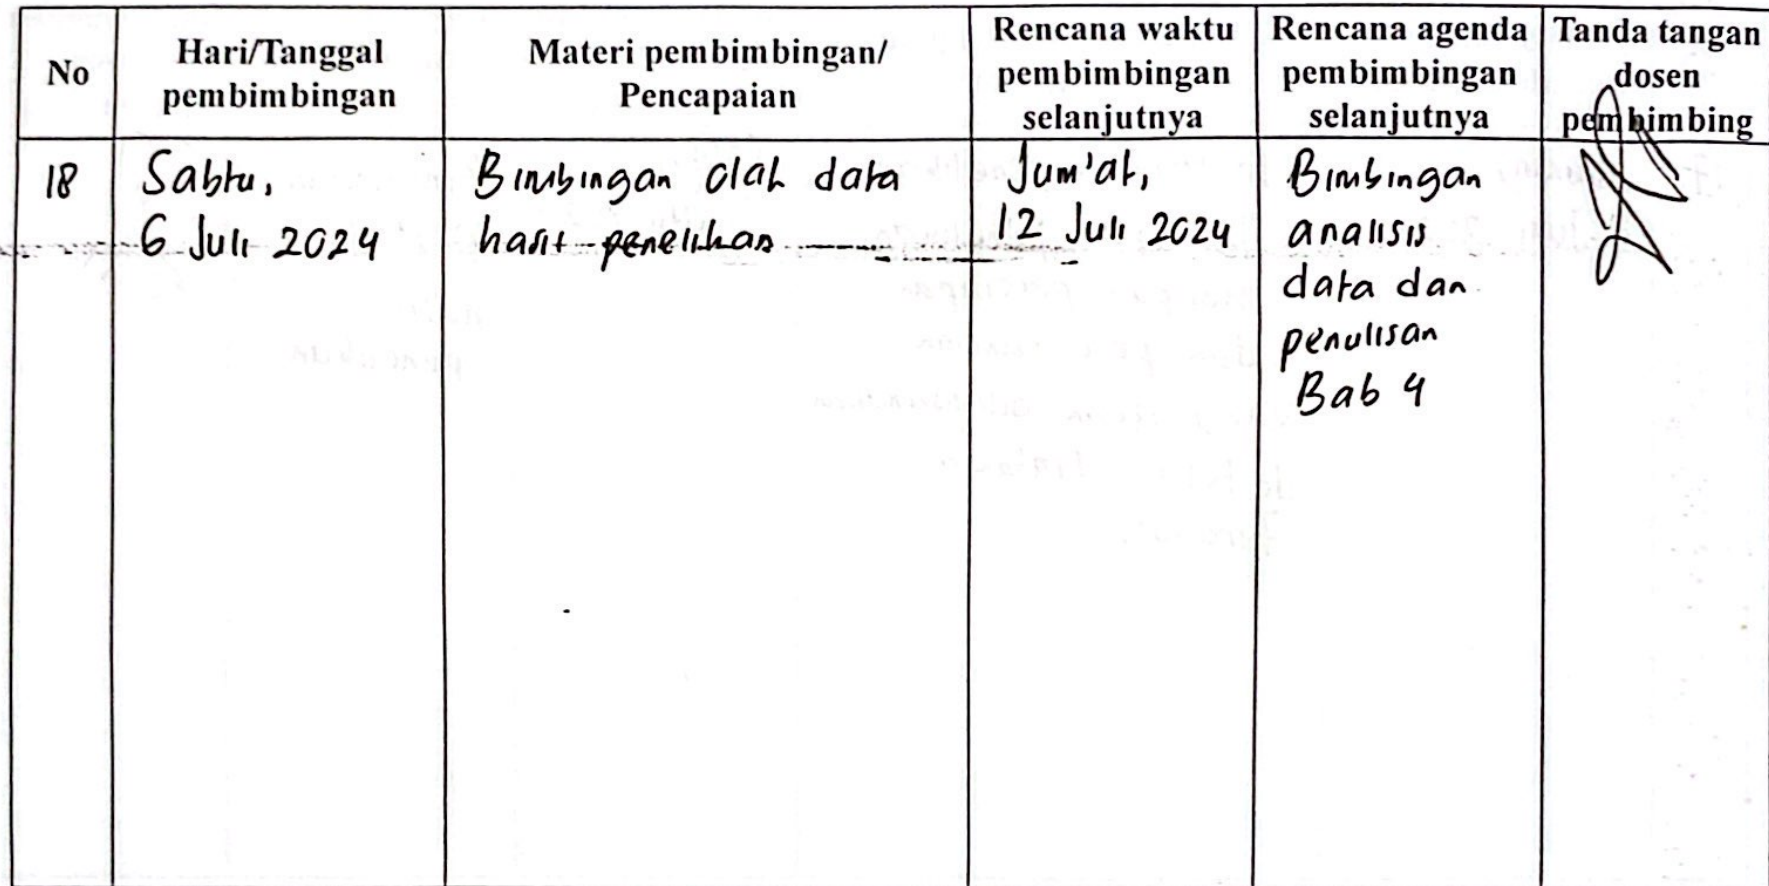 No
Hari/Tanggal
pembimbingan
Materi pembimbingan/
Pencapaian
Rencana waktu
pembimbingan
selanjutnya
Rencana agenda
pembimbingan
selanjutnya
Tanda tangan
dosen
pembimbing
18
Sabtu,
6 Juli 2024
Bimbingan olah data
hasil penelitian
Jum'at,
12 Juli 2024
Bimbingan
analisis
data dan
penulisan
Bab 4